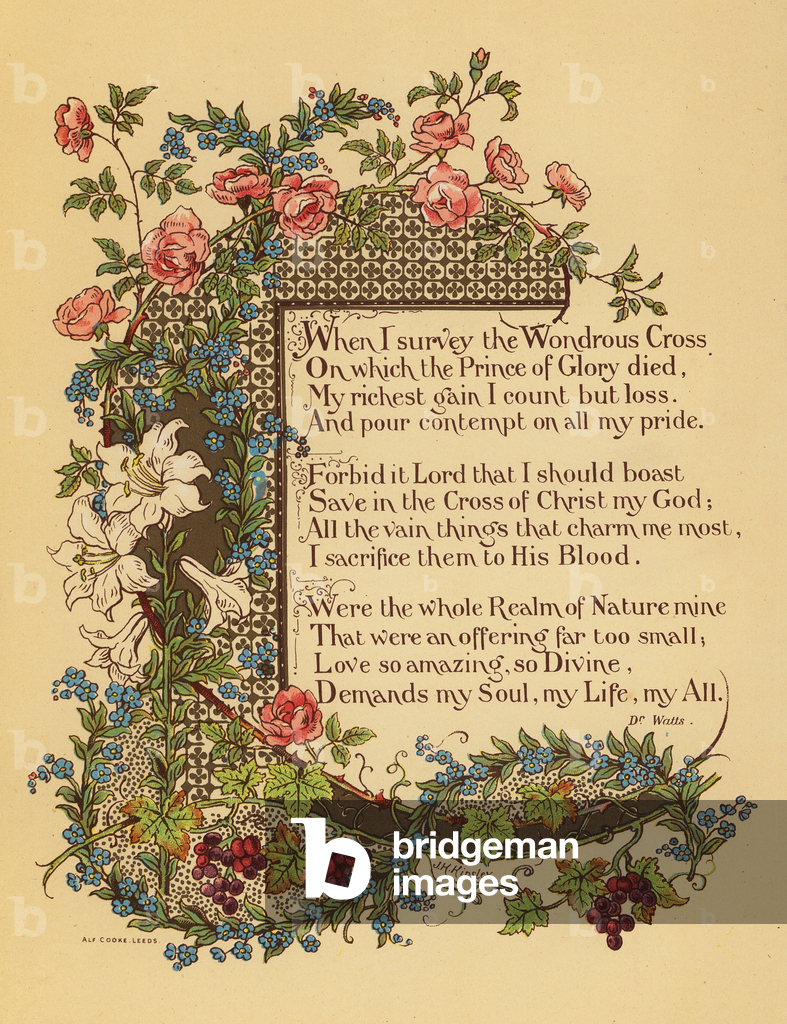 When I survey the Wondrous Cross
On which the Prince of Glory died,
My richest gain I count but loss.
And pour contempt on all my pride.
Forbid it Lord that I should boast
Save in the Cross of Christ my God;
All the vain things that charm me most,
I sacrifice them to His Blood.
Were the whole Realm of Nature mine
That were an offering far too small;
Love so amazing, so Divine,
Demands my Soul, my Life, my All.
Dr Watts.
bridgeman
images
ALF COOKE. LEEDS.